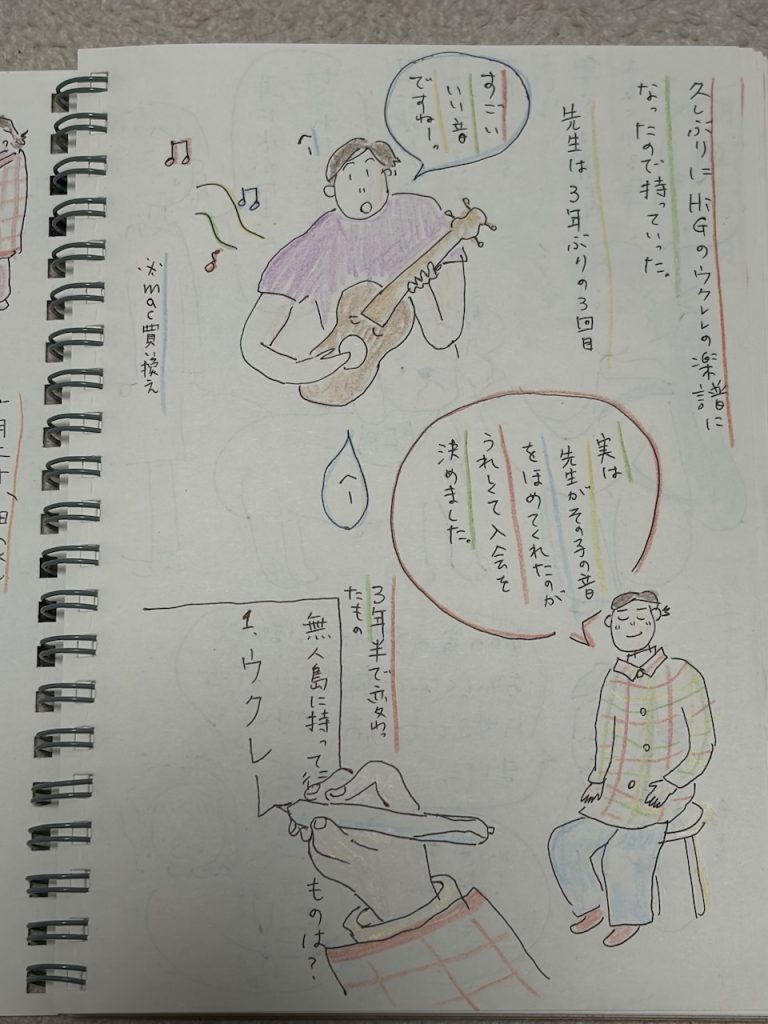 久しぶりにHiGのウクレレの楽譜に
なったので持っていった。
先生は3年ぶりの3回目
すごい
いい音
ですねーっ
へー
※mac買換え
実は
先生がその子の音
をほめてくれたのが
うれしくて入会を
決めました。
へー
3年半で変わっ
たもの
無人島に持って行
ものは?
1、ウクレレ